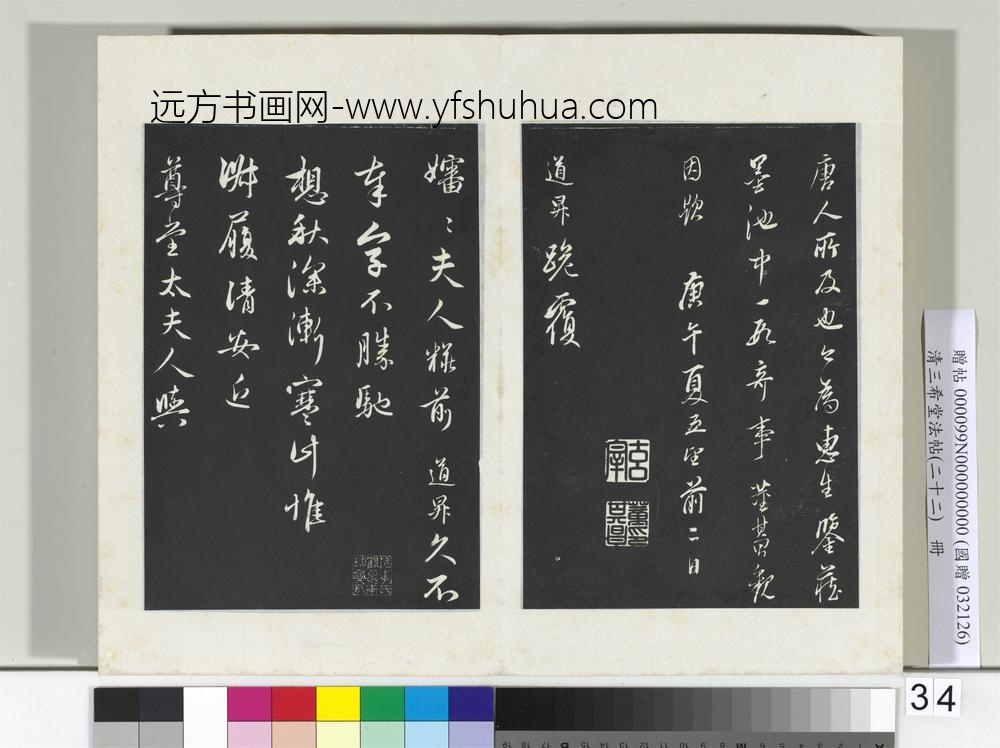 远方书画网-www.yfshuhua.com
唐人所及也今為惠生鑒藏
墨池中一段奇事 董其昌觀
因題 庚午夏五望前二日
道昇跪覆
嬸〻夫人粧前 道昇久不
奉字不勝馳
想秋深漸寒計惟
淑履清安近
尊堂太夫人與
贈帖 000099N000000000 (國贈 032126)
清三希堂法帖(二十二) 冊
34